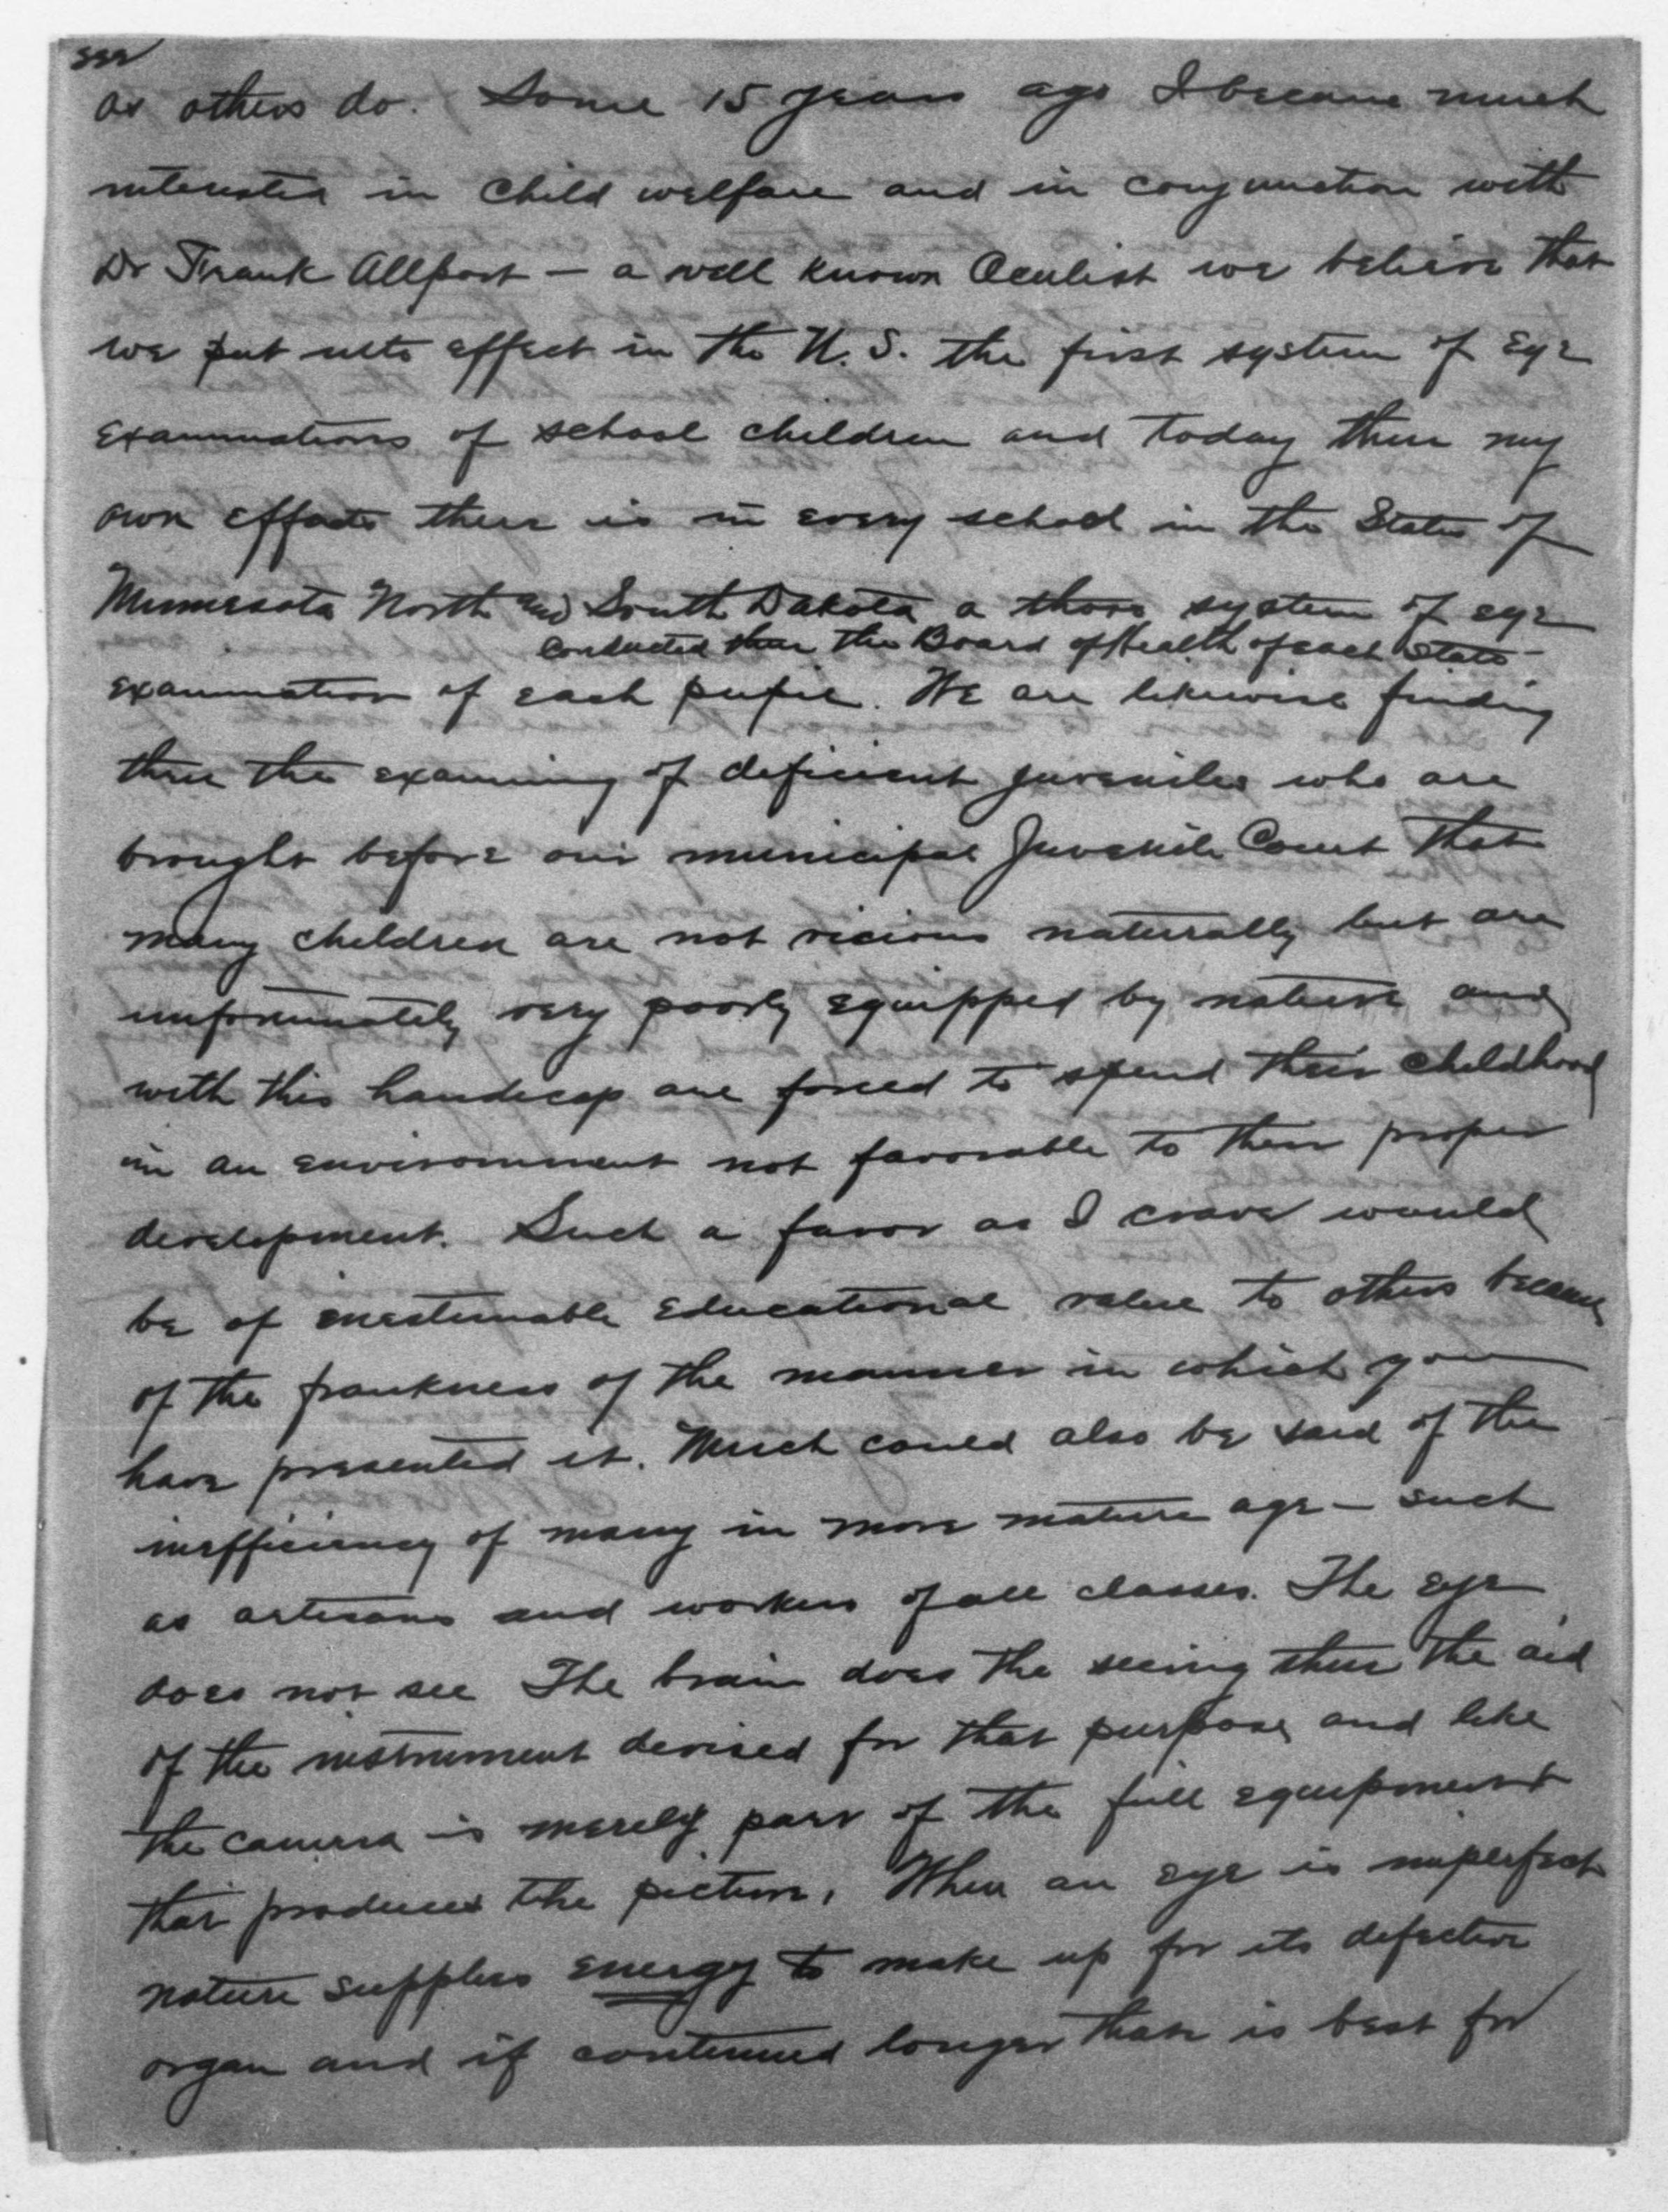 see
as others do. Some 15 years ago I became much
interested in child welfare and in conjunction with
Dr Frank Allport – a well known Oculist we believe that
we put into effect in the U.S. the first system of Eye
Examinations of school children and today thru my
own efforts there is in every school in the States of
Minnesota North and South Dakota a thoro system of eye
conducted thru the Board of Health of each State –
examination of each pupil. We are likewise finding
thru the examining of deficient juveniles who are
brought before our municipal Juvenile Court that
many children are not vicious naturally but are
unfortunately very poorly equipped by nature and
with this handicap are forced to spend their childhood
in an environment not favorable to their proper
development. Such a favor as I crave would
be of inestimable educational value to others because
of the frankness of the manner in which you
have presented it. Much could also be said of the
inefficiency of many in more mature age – such
as artisans and workers of all classes. The eye
does not see The brain does the seeing thru the aid
of the instrument devised for that purpose, and like
the camera is merely part of the full equipment
that produces the picture. When an eye is imperfect
nature supplies energy to make up for its defective
organ and if continued longer than is best for